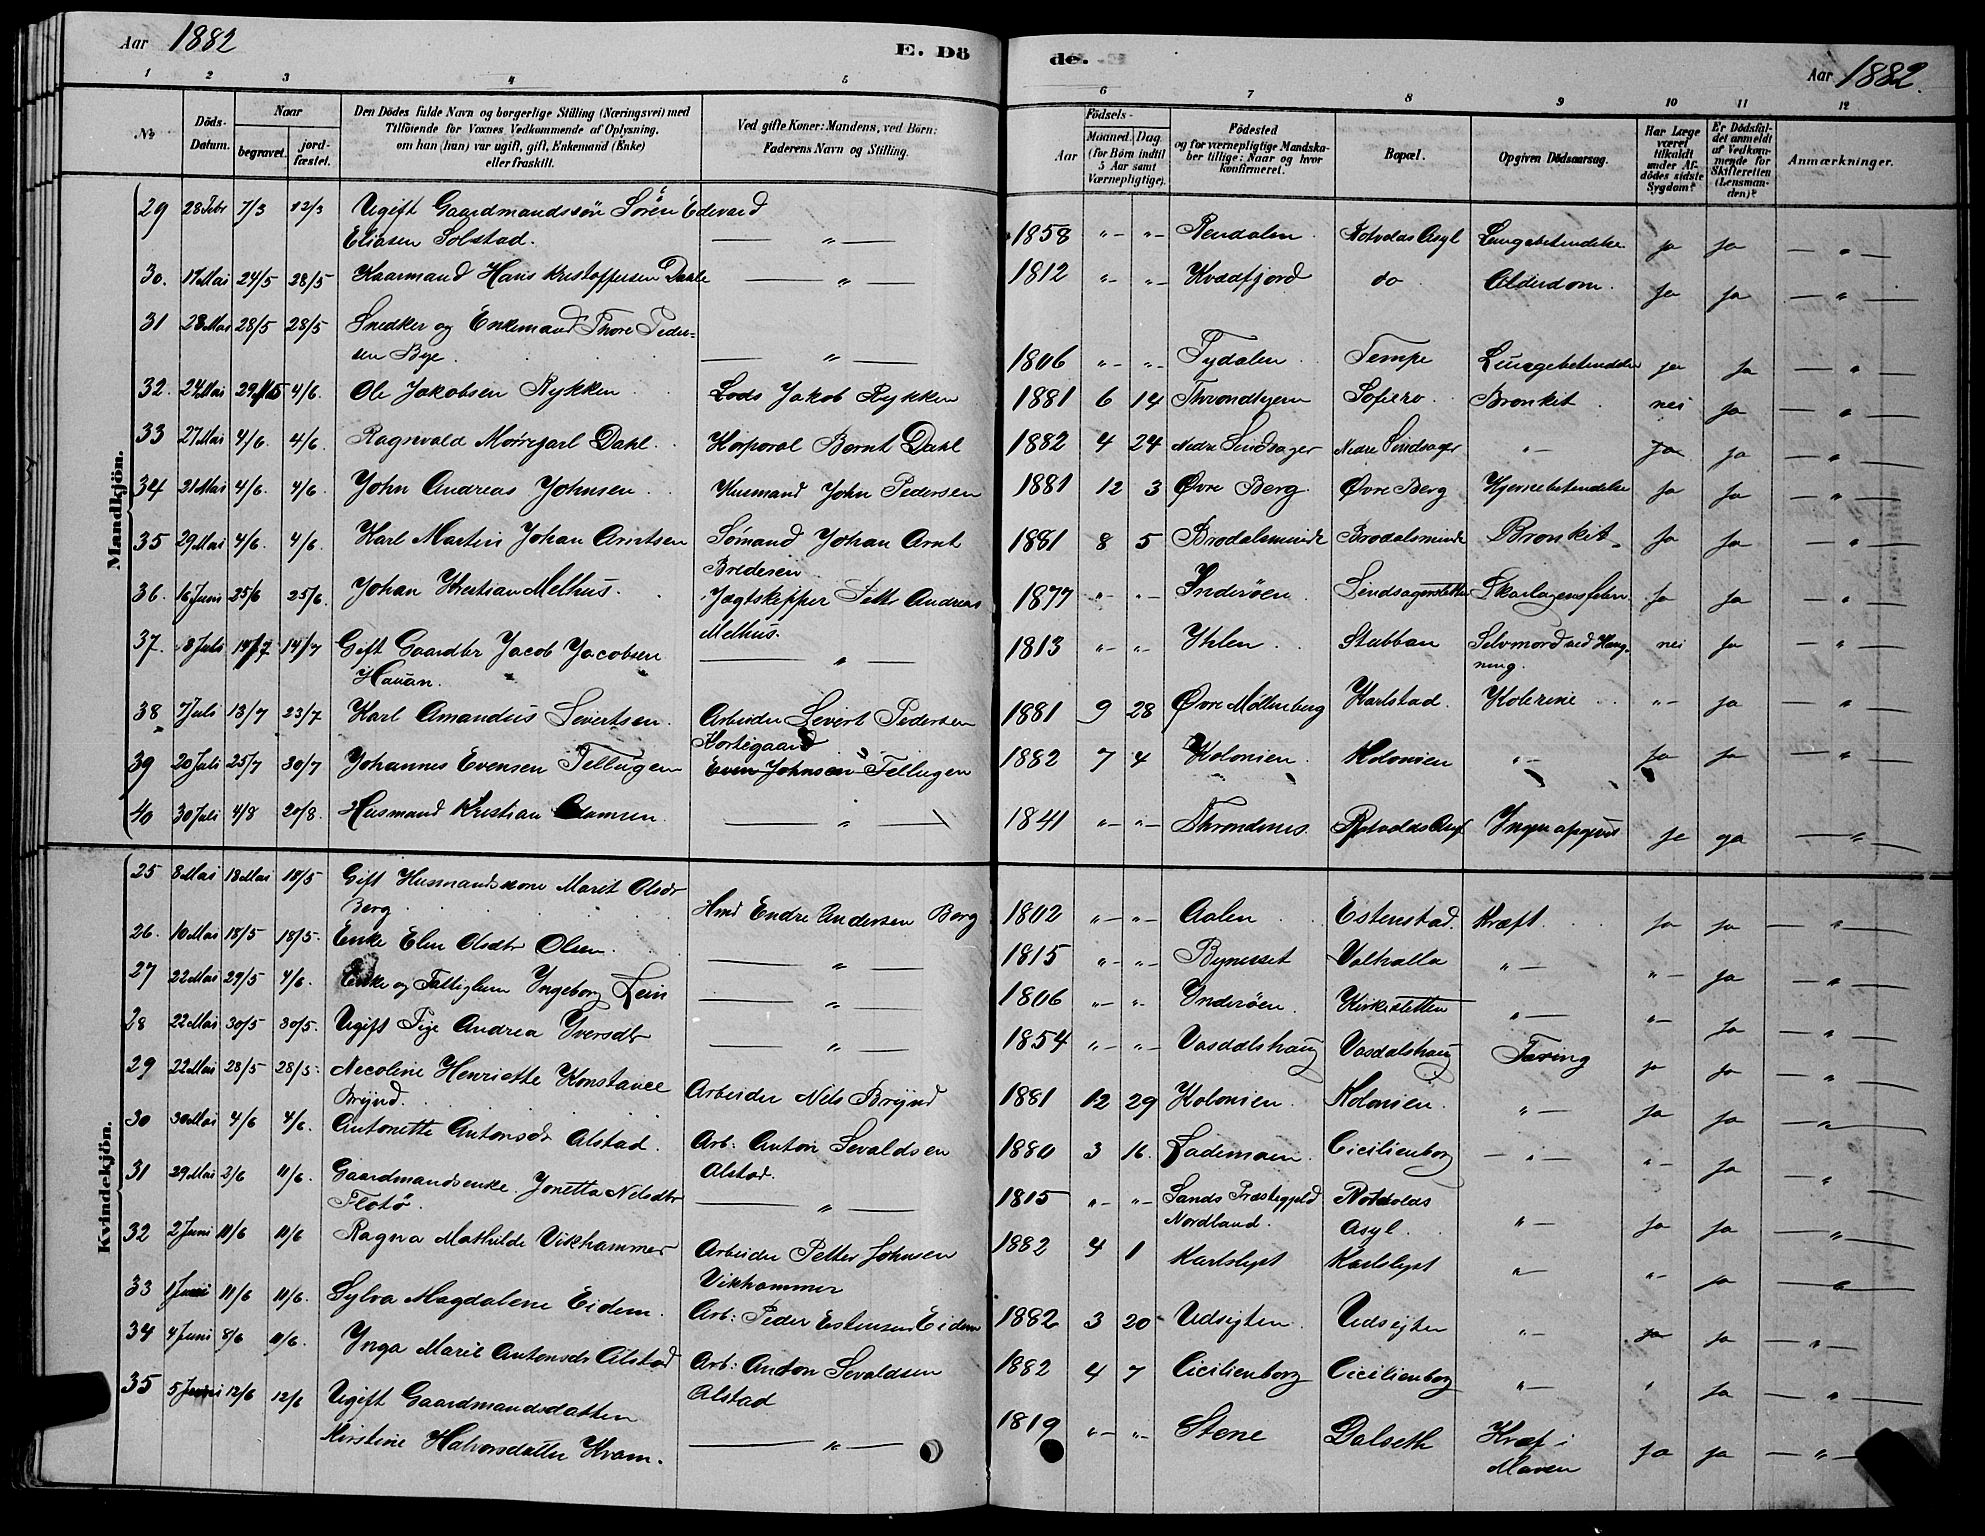 Aar 1882
E. Dö
de.
Aar 1882.
1 2 3 4 5
6 7 8 9 10 11 12
No
Döds-Datum.
Naar
begravet.
jord-fæstet.
Den Dödes fulde Navn og borgerlige Stilling (Næringsvei) med
Tilföiende for Voxnes Vedkommende af Oplysning.
om han (hun) var ugift, gift, Enkemand (Enke)
eller fraskilt.
Ved gifte Koner: Mandens, ved Börn:
Faderens Navn og Stilling.
Födsels-
Aar
Maaned. Dag.
(for Börn indtil
5 Aar samt
Værnepligtige).
Födested
og for værnepligtige Mandska-
ber tillige: Naar og hvor
konfirmeret.
Bopæl.
Opgiven Dödsaarsag.
Har Læge
været
tilkaldt
under Af-
dödes sidste
Sygdom?
Er Dödsfal-
det anmeldt
af Vedkom-
mende for
Skifteretten
(Lensman-
den)?
Anmærkninger.
Mandkjön.
29 28 Febr 7/3 12/3 Ugift Gaardmandssön Sören Edevard
Eliasen Solstad. — " — 1858 "- "- Rendalen Rotvolds Asyl Lungebetendelse ja ja — " —
30. 17 Mai 24/5 28/5 Kaarmand Hans Kristoffersen Dahle — " — 1812 "- "- Kvædfjord do Alderdom. ja ja — " —
31 23 Mai 28/5 28/5 Snedker og Enkemand Thore Peder-
sen Bye. — " — 1806 "- "- Tydalen Tempe Lungebetendelse ja ja — " —
32. 24 Mai 29/5 4/6. Ole Jakobsen Rykken Lods Jakob Rykken 1881 6 14 Throndhjem Sofiero Bronkit nei ja — " —
33 27 Mai 4/6. 4/6. Ragnvald Mørejarl Dahl. Korporal Bernt Dahl 1882 4 24 Nedre Lindsager Nedre Lindsager "- ja ja — " —
34 31 Mai 4/6. 4/6. John Andreas Johnsen Husmand John Pedersen 1881 12 3 Øvre Berg Øvre Berg Hjernebetendelse ja ja — " —
35 29 Mai 4/6. 4/6. Karl Martin Johan Arntsen Sømand Johan Arnt
Bredesen 1881 8 5 Brodalsminde Brodalsminde Bronkit. ja ja — " —
36. 16 Juni 25/6 25/6. Johan Kristian Melhus. Jægtskipper Petter Andreas
Melhus. 1877 "- "- Inderöen Lindsagersletten Skarlagensfeber ja ja — " —
37. 8 Juli 14/7 14/7 Gift Gaardbr Jacob Jacobsen
Hauan. — " — 1813 "- "- Ihlen Stubban Selvmord ved Hæng-
ning. nei ja — " —
38 7 Juli 13/7 23/7 Karl Amandus Sivertsen. Arbeider Sivert Pedersen
Kortegaard 1881 9 28 Øvre Møllenberg Karlstad. Kolerine "- ja — " —
39 20 Juli 25/7 30/7 Johannes Evensen Tellugen Even Johnsen Tellugen 1882 7 4 Kolonien Kolonien "- ja ja — " —
40 30 Juli 4/8 20/8. Husmand Kristian Adamsen — " — 1841 "- "- Throndenes Rotvolds Asyl Ingen opgivet ja ja — " —
Kvindekjön.
25 8 Mai 18 Mai 18/5 Gift Husmandskone Marit Olsdr
Berg Hmd Endre Andersen Berg 1802 "- "- Aalen Estenstad. Kræft ja ja — " —
26. 10 Mai 18/5 18/5. Enke Elen Olsdtr Olsen — " — 1815 "- "- Bynesset Valhalla "- "- ja — " —
27 22 Mai 29/5 4/6. Enke og Fattiglem Ingeborg Lein — " — 1806 "- "- Inderöen. Kirkesletten "- "- ja — " —
28 22 Mai 30/5 30/5. Ugift Pige Andrea Iversdtr — " — 1854 "- "- Vasdalshaug Vasdalshaug Tæring ja ja — " —
29 22 Mai 28/5 28/5. Necoline Henriette Konstance
Brynd. Arbeider Nels Brynd 1881 12 29 Kolonien. Kolonien. "- ja ja — " —
30 30 Mai 4/6 4/6. Antonette Antonsdr Alstad. Arb: Anton Sevaldsen
Alstad. 1880 3 16. Lademoen. Cicilienborg — " — "- ja — " —
31 29 Mai 3/6 11/6. Gaardmandsenke Jonetta Nelsdtr
Flotö. — " — 1815 "- "- Sands Præstegjeld
Nordland. Rotvolds
Asyl. "- ja ja — " —
32 2 Juni 11/6 11/6 Ragna Mathilde Vikhammer Arbeider Petter Johnsen
Vikhammer 1882 4 1 Karlslyst Karlslyst "- "- ja — " —
33 1 Juni 11/6 11/6. Sylva Magdalene Eidem. Arb: Peder Estensen Eidem 1882 3 20 Udsigten Udsigten "- ja ja — " —
34 4 Juni 8/6 11/6. Inga Marie Antonsdr Alstad Arb: Anton Sevaldsen
Alstad 1882 4 7 Cicilienborg Cicilienborg "- " ja — " —
35 5 Juni 12/6 12/6 Ugift Gaardmandsdatter
Kirstine Halvorsdatter Kvam. — " — 1819 "- "- Stene Dalseth Kræf i
Maven ja ja — " —